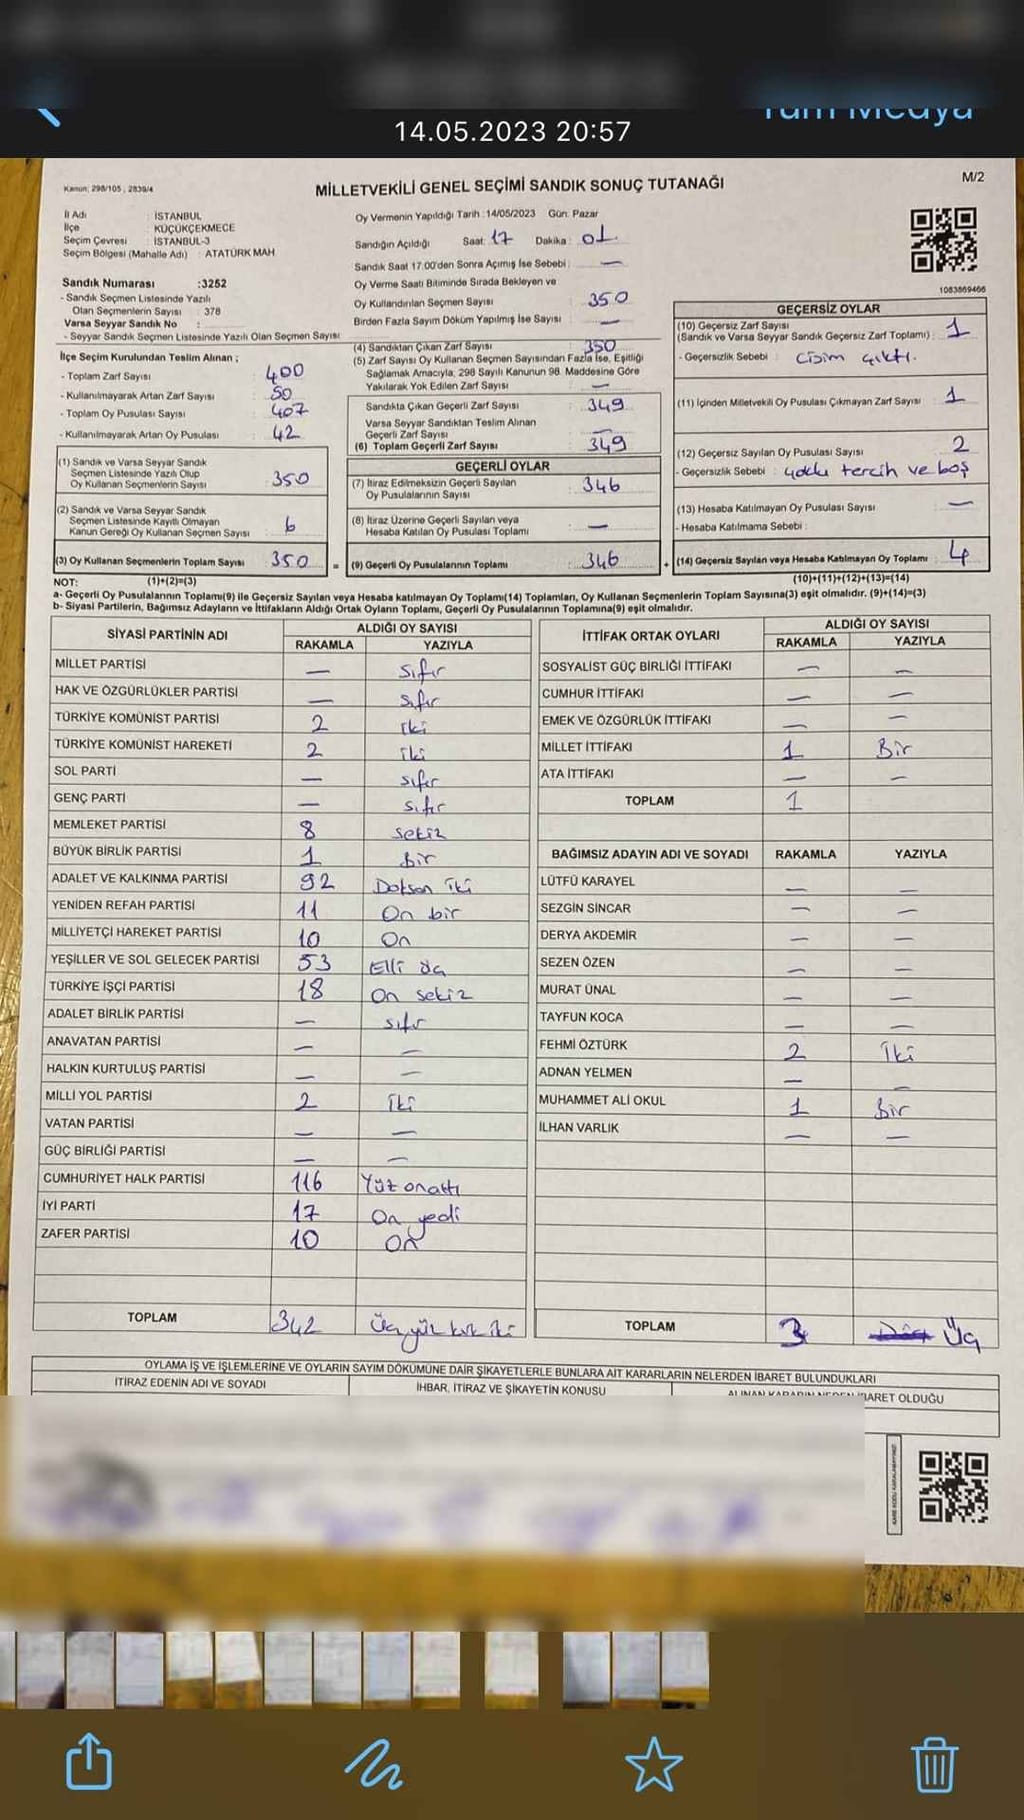 14.05.2023 20:57
Tüm Medya
Kanun: 298/105 , 2839/4
MİLLETVEKİLİ GENEL SEÇİMİ SANDIK SONUÇ TUTANAĞI
M/2
İl Adı : İSTANBUL
İlçe : KÜÇÜKÇEKMECE
Seçim Çevresi : İSTANBUL-3
Seçim Bölgesi (Mahalle Adı) : ATATÜRK MAH
Oy Vermenin Yapıldığı Tarih :14/05/2023 Gün: Pazar
Sandığın Açıldığı Saat: 17 Dakika : 01
Sandık Saat 17:00'den Sonra Açımış İse Sebebi : —
Oy Verme Saati Bitiminde Sırada Bekleyen ve
Oy Kullandırılan Seçmen Sayısı : 350
Birden Fazla Sayım Döküm Yapılmış İse Sayısı : —
1083869466
Sandık Numarası :3252
- Sandık Seçmen Listesinde Yazılı
Olan Seçmenlerin Sayısı : 378
Varsa Seyyar Sandık No :
- Seyyar Sandık Seçmen Listesinde Yazılı Olan Seçmen Sayısı
İlçe Seçim Kurulundan Teslim Alınan ;
- Toplam Zarf Sayısı : 400
- Kullanılmayarak Artan Zarf Sayısı : 50
- Toplam Oy Pusulası Sayısı : 407
- Kullanılmayarak Artan Oy Pusulası : 42
(1) Sandık ve Varsa Seyyar Sandık
Seçmen Listesinde Yazılı Olup
Oy Kullanan Seçmenlerin Sayısı : 350
(2) Sandık ve Varsa Seyyar Sandık
Seçmen Listesinde Kayıtlı Olmayan
Kanun Gereği Oy Kullanan Seçmen Sayısı : 6
(3) Oy Kullanan Seçmenlerin Toplam Sayısı : 350 =
(4) Sandıktan Çıkan Zarf Sayısı : 350
(5) Zarf Sayısı Oy Kullanan Seçmen Sayısından Fazla İse, Eşitliği
Sağlamak Amacıyla, 298 Sayılı Kanunun 98. Maddesine Göre
Yakılarak Yok Edilen Zarf Sayısı : —
Sandıkta Çıkan Geçerli Zarf Sayısı : 349
Varsa Seyyar Sandıktan Teslim Alınan
Geçerli Zarf Sayısı : —
(6) Toplam Geçerli Zarf Sayısı : 349
GEÇERLİ OYLAR
(7) İtiraz Edilmeksizin Geçerli Sayılan
Oy Pusulalarının Sayısı : 346
(8) İtiraz Üzerine Geçerli Sayılan veya
Hesaba Katılan Oy Pusulası Toplamı : —
(9) Geçerli Oy Pusulalarının Toplamı : 346 +
GEÇERSİZ OYLAR
(10) Geçersiz Zarf Sayısı
(Sandık ve Varsa Seyyar Sandık Geçersiz Zarf Toplamı) : 1
- Geçersizlik Sebebi : cisim çıktı.
(11) İçinden Milletvekili Oy Pusulası Çıkmayan Zarf Sayısı : 1
(12) Geçersiz Sayılan Oy Pusulası Sayısı : 2
- Geçersizlik Sebebi : çoklu tercih ve boş
(13) Hesaba Katılmayan Oy Pusulası Sayısı : —
- Hesaba Katılmama Sebebi :
(14) Geçersiz Sayılan veya Hesaba Katılmayan Oy Toplamı : 4
NOT: (1)+(2)=(3) (10)+(11)+(12)+(13)=(14)
a- Geçerli Oy Pusulalarının Toplamı(9) ile Geçersiz Sayılan veya Hesaba katılmayan Oy Toplamı(14) Toplamları, Oy Kullanan Seçmenlerin Toplam Sayısına(3) eşit olmalıdır. (9)+(14)=(3)
b- Siyasi Partilerin, Bağımsız Adayların ve İttifakların Aldığı Ortak Oyların Toplamı, Geçerli Oy Pusulalarının Toplamına(9) eşit olmalıdır.
SİYASİ PARTİNİN ADI ALDIĞI OY SAYISI
RAKAMLA YAZIYLA
MİLLET PARTİSİ — sıfır
HAK VE ÖZGÜRLÜKLER PARTİSİ — sıfır
TÜRKİYE KOMÜNİST PARTİSİ 2 iki
TÜRKİYE KOMÜNİST HAREKETİ 2 iki
SOL PARTİ — sıfır
GENÇ PARTİ — sıfır
MEMLEKET PARTİSİ 8 sekiz
BÜYÜK BİRLİK PARTİSİ 1 Bir
ADALET VE KALKINMA PARTİSİ 92 Doksan iki
YENİDEN REFAH PARTİSİ 11 On bir
MİLLİYETÇİ HAREKET PARTİSİ 10 On
YEŞİLLER VE SOL GELECEK PARTİSİ 53 Elli üç
TÜRKİYE İŞÇİ PARTİSİ 18 On sekiz
ADALET BİRLİK PARTİSİ — sıfır
ANAVATAN PARTİSİ — —
HALKIN KURTULUŞ PARTİSİ — —
MİLLİ YOL PARTİSİ 2 iki
VATAN PARTİSİ — —
GÜÇ BİRLİĞİ PARTİSİ — —
CUMHURİYET HALK PARTİSİ 116 Yüz onaltı
İYİ PARTİ 17 On yedi
ZAFER PARTİSİ 10 On
TOPLAM 342 Üçyüz kırk iki
İTTİFAK ORTAK OYLARI ALDIĞI OY SAYISI
RAKAMLA YAZIYLA
SOSYALİST GÜÇ BİRLİĞİ İTTİFAKI — —
CUMHUR İTTİFAKI — —
EMEK VE ÖZGÜRLÜK İTTİFAKI — —
MİLLET İTTİFAKI 1 Bir
ATA İTTİFAKI — —
TOPLAM 1
BAĞIMSIZ ADAYIN ADI VE SOYADI RAKAMLA YAZIYLA
LÜTFÜ KARAYEL — —
SEZGİN SİNCAR — —
DERYA AKDEMİR — —
SEZEN ÖZEN — —
MURAT ÜNAL — —
TAYFUN KOCA — —
FEHMİ ÖZTÜRK 2 İki
ADNAN YELMEN — —
MUHAMMET ALİ OKUL 1 Bir
İLHAN VARLIK — —
TOPLAM 3 Üç
OYLAMA İŞ VE İŞLEMLERİNE VE OYLARIN SAYIM DÖKÜMÜNE DAİR ŞİKAYETLERLE BUNLARA AİT KARARLARIN NELERDEN İBARET BULUNDUKLARI
İTİRAZ EDENİN ADI VE SOYADI İHBAR, İTİRAZ VE ŞİKAYETİN KONUSU ALINAN KARARIN NEDEN İBARET OLDUĞU